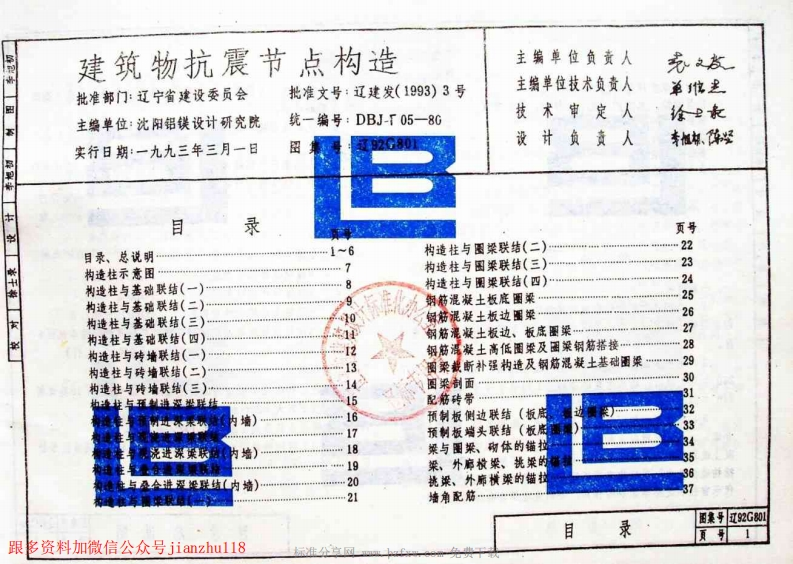 建筑物抗震节点构造
批准部门：辽宁省建设委员会
批准文号：辽建发(1993)3号
主编单位：沈阳铝镁设计研究院
统一编号：DBJ-T 05-86
实行日期：一九九三年三月一日
图集号：辽92G801
主编单位负责人
主编单位技术负责人
技术审定人
设计负责人
制图 李旭初
设计 李旭初
校对 徐士泉
目录
页号
目录、总说明 1～6
构造柱示意图 7
构造柱与基础联结(一) 8
构造柱与基础联结(二) 9
构造柱与基础联结(三) 10
构造柱与基础联结(四) 11
构造柱与砖墙联结(一) 12
构造柱与砖墙联结(二) 13
构造柱与砖墙联结(三) 14
构造柱与预制进深梁联结 15
构造柱与预制进深梁联结(内墙) 16
构造柱与现浇进深梁联结 17
构造柱与现浇进深梁联结(内墙) 18
构造柱与叠合进深梁联结 19
构造柱与叠合进深梁联结(内墙) 20
构造柱与圈梁联结(一) 21
页号
构造柱与圈梁联结(二) 22
构造柱与圈梁联结(三) 23
构造柱与圈梁联结(四) 24
钢筋混凝土板底圈梁 25
钢筋混凝土板边圈梁 26
钢筋混凝土板边、板底圈梁 27
钢筋混凝土高低圈梁及圈梁钢筋搭接 28
圈梁截断补强构造及钢筋混凝土基础圈梁 29
圈梁剖面 30
配筋砖带 31
预制板侧边联结(板底、板边圈梁) 32
预制板端头联结(板底圈梁) 33
梁与圈梁、砌体的锚拉 34
梁、外廊横梁、挑梁的锚拉 35
挑梁、外廊横梁的锚拉 36
墙角配筋 37
目录
图集号 辽92G801
页号 1
跟多资料加微信公众号jianzhu118
标准分享网 www.bzfxw.com 免费下载